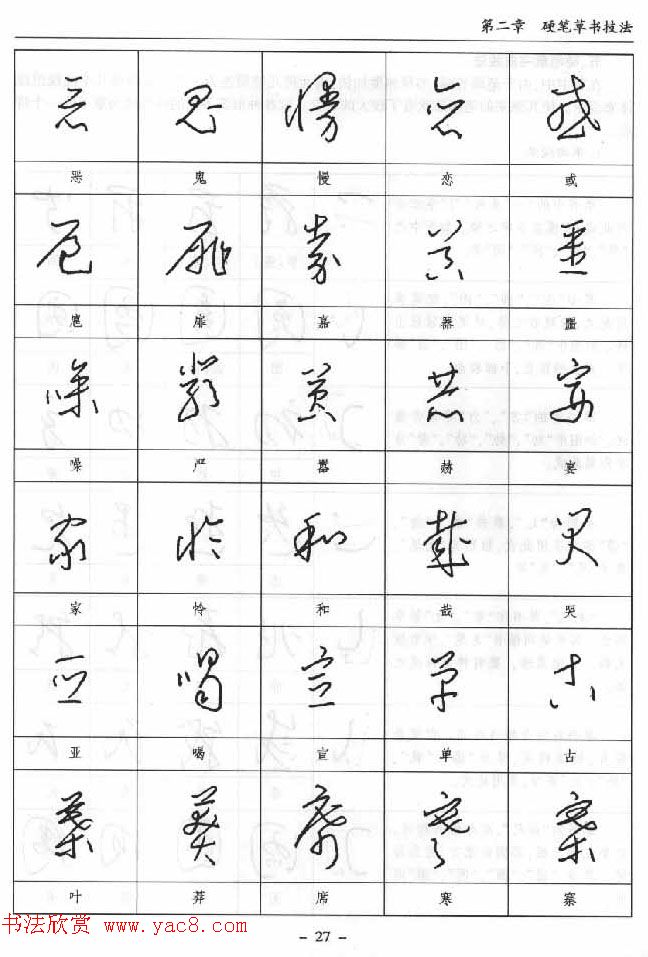 第二章 硬笔草书技法
恶 鬼 慢 恋 或
扈 扉 嘉 器 噩
噪 严 嚣 赫 宴
家 怜 和 哉 哭
亚 喝 宣 单 古
叶 莽 席 寒 寨
书法欣赏 www.yac8.com
- 27 -